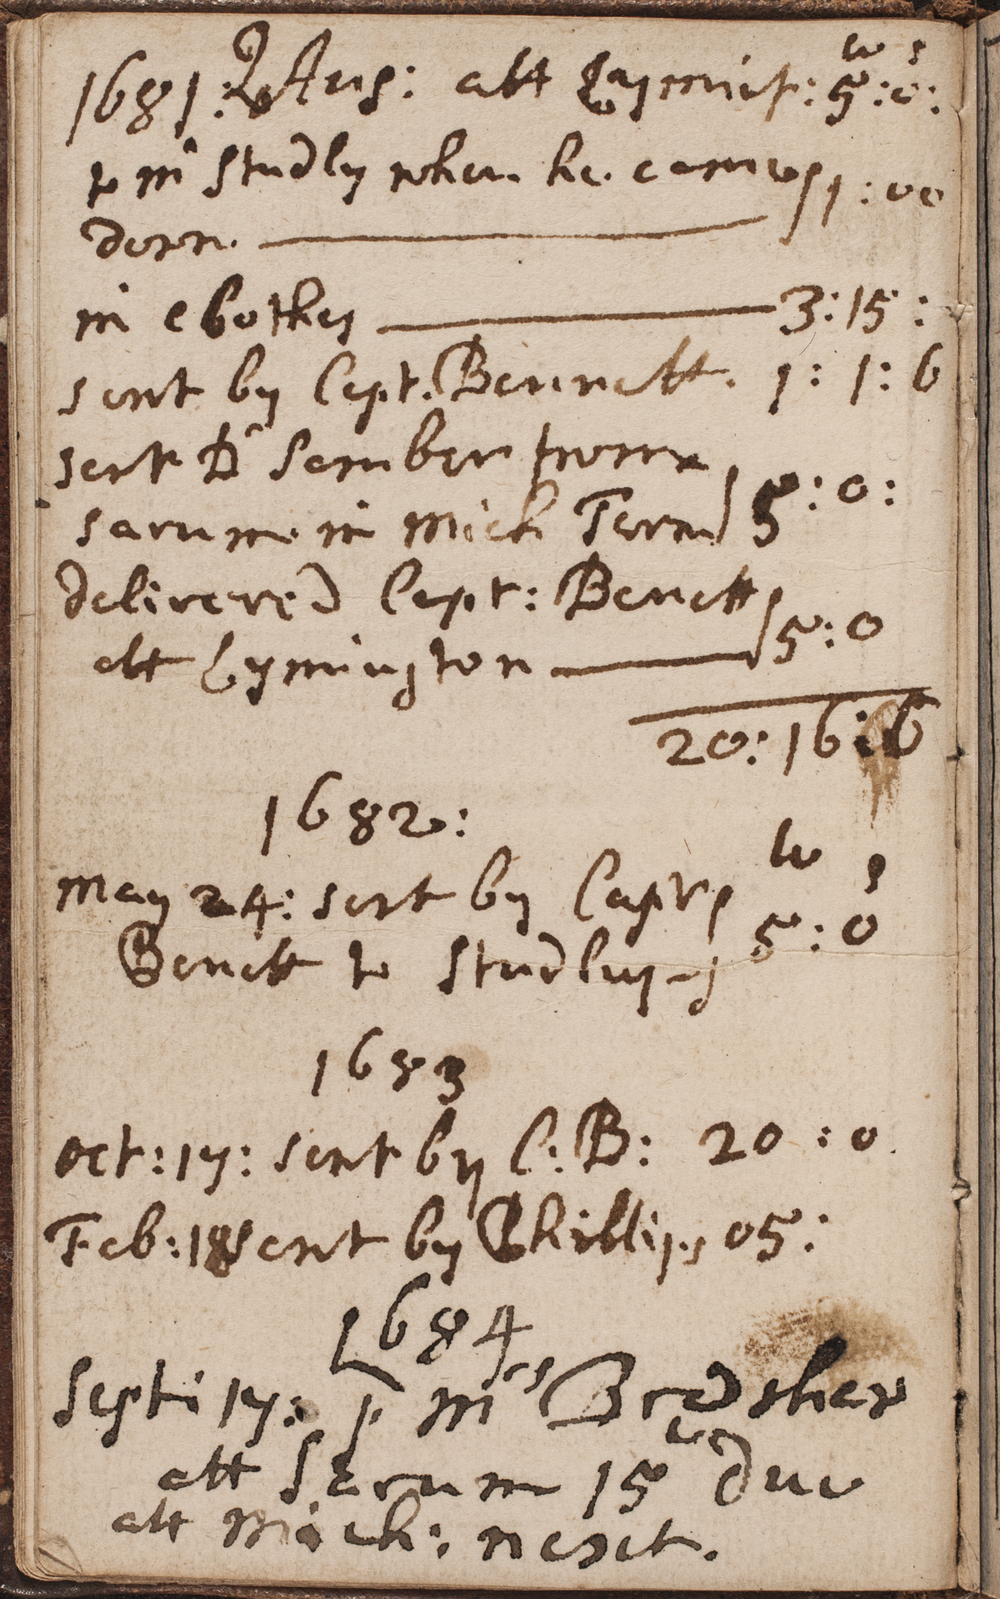 li s
1681: 2 Aug: att Lymingt: 5:0:
to mr Studly when he came 1:00
down.
in Clothes 3:15:
sent by Capt. Bennett. 1:1:6
sent Dr Sember from
Sarum in Mich Term 5:0:
delivered Capt: Benett
att Lymington 5:0
20:16:6
1682:
li s
May 24: sent by Capt
Benett to Studly 5:0
1683
Oct: 17: sent by C: B: 20:0.
Feb: 18 sent by Phillips 05:
1684
Sept: 17: p mrs Bradshaw
att Sarum 15li due
att Mich: next.